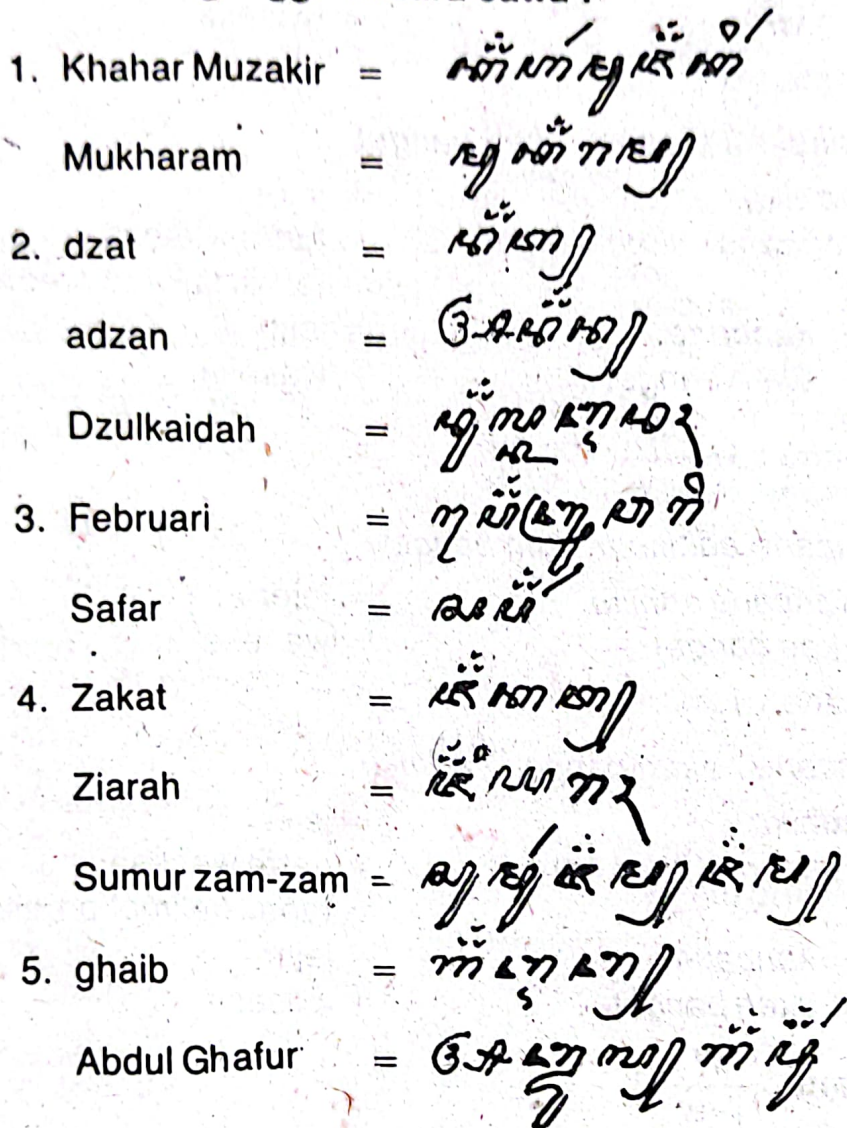 1. Khahar Muzakir = ꦏ꦳ꦲꦂꦩꦸꦗ꦳ꦏꦶꦂ
Mukharam = ꦩꦸꦏ꦳ꦫꦩ꧀
2. dzat = ꦢ꦳ꦠ꧀
adzan = ꦄꦢ꦳ꦤ꧀
Dzulkaidah = ꦢ꦳ꦸꦭ꧀ꦏꦆꦢꦃ
3. Februari = ꦥ꦳ꦺꦧꦿꦸꦮꦫꦶ
Safar = ꦱꦥ꦳ꦂ
4. Zakat = ꦗ꦳ꦏꦠ꧀
Ziarah = ꦗ꦳ꦶꦪꦫꦃ
Sumur zam-zam = ꦱꦸꦩꦸꦂꦗ꦳ꦩ꧀ꦗ꦳ꦩ꧀
5. ghaib = ꦒ꦳ꦆꦧ꧀
Abdul Ghafur = ꦄꦧ꧀ꦢꦸꦭ꧀ꦒ꦳ꦥ꦳ꦸꦂ